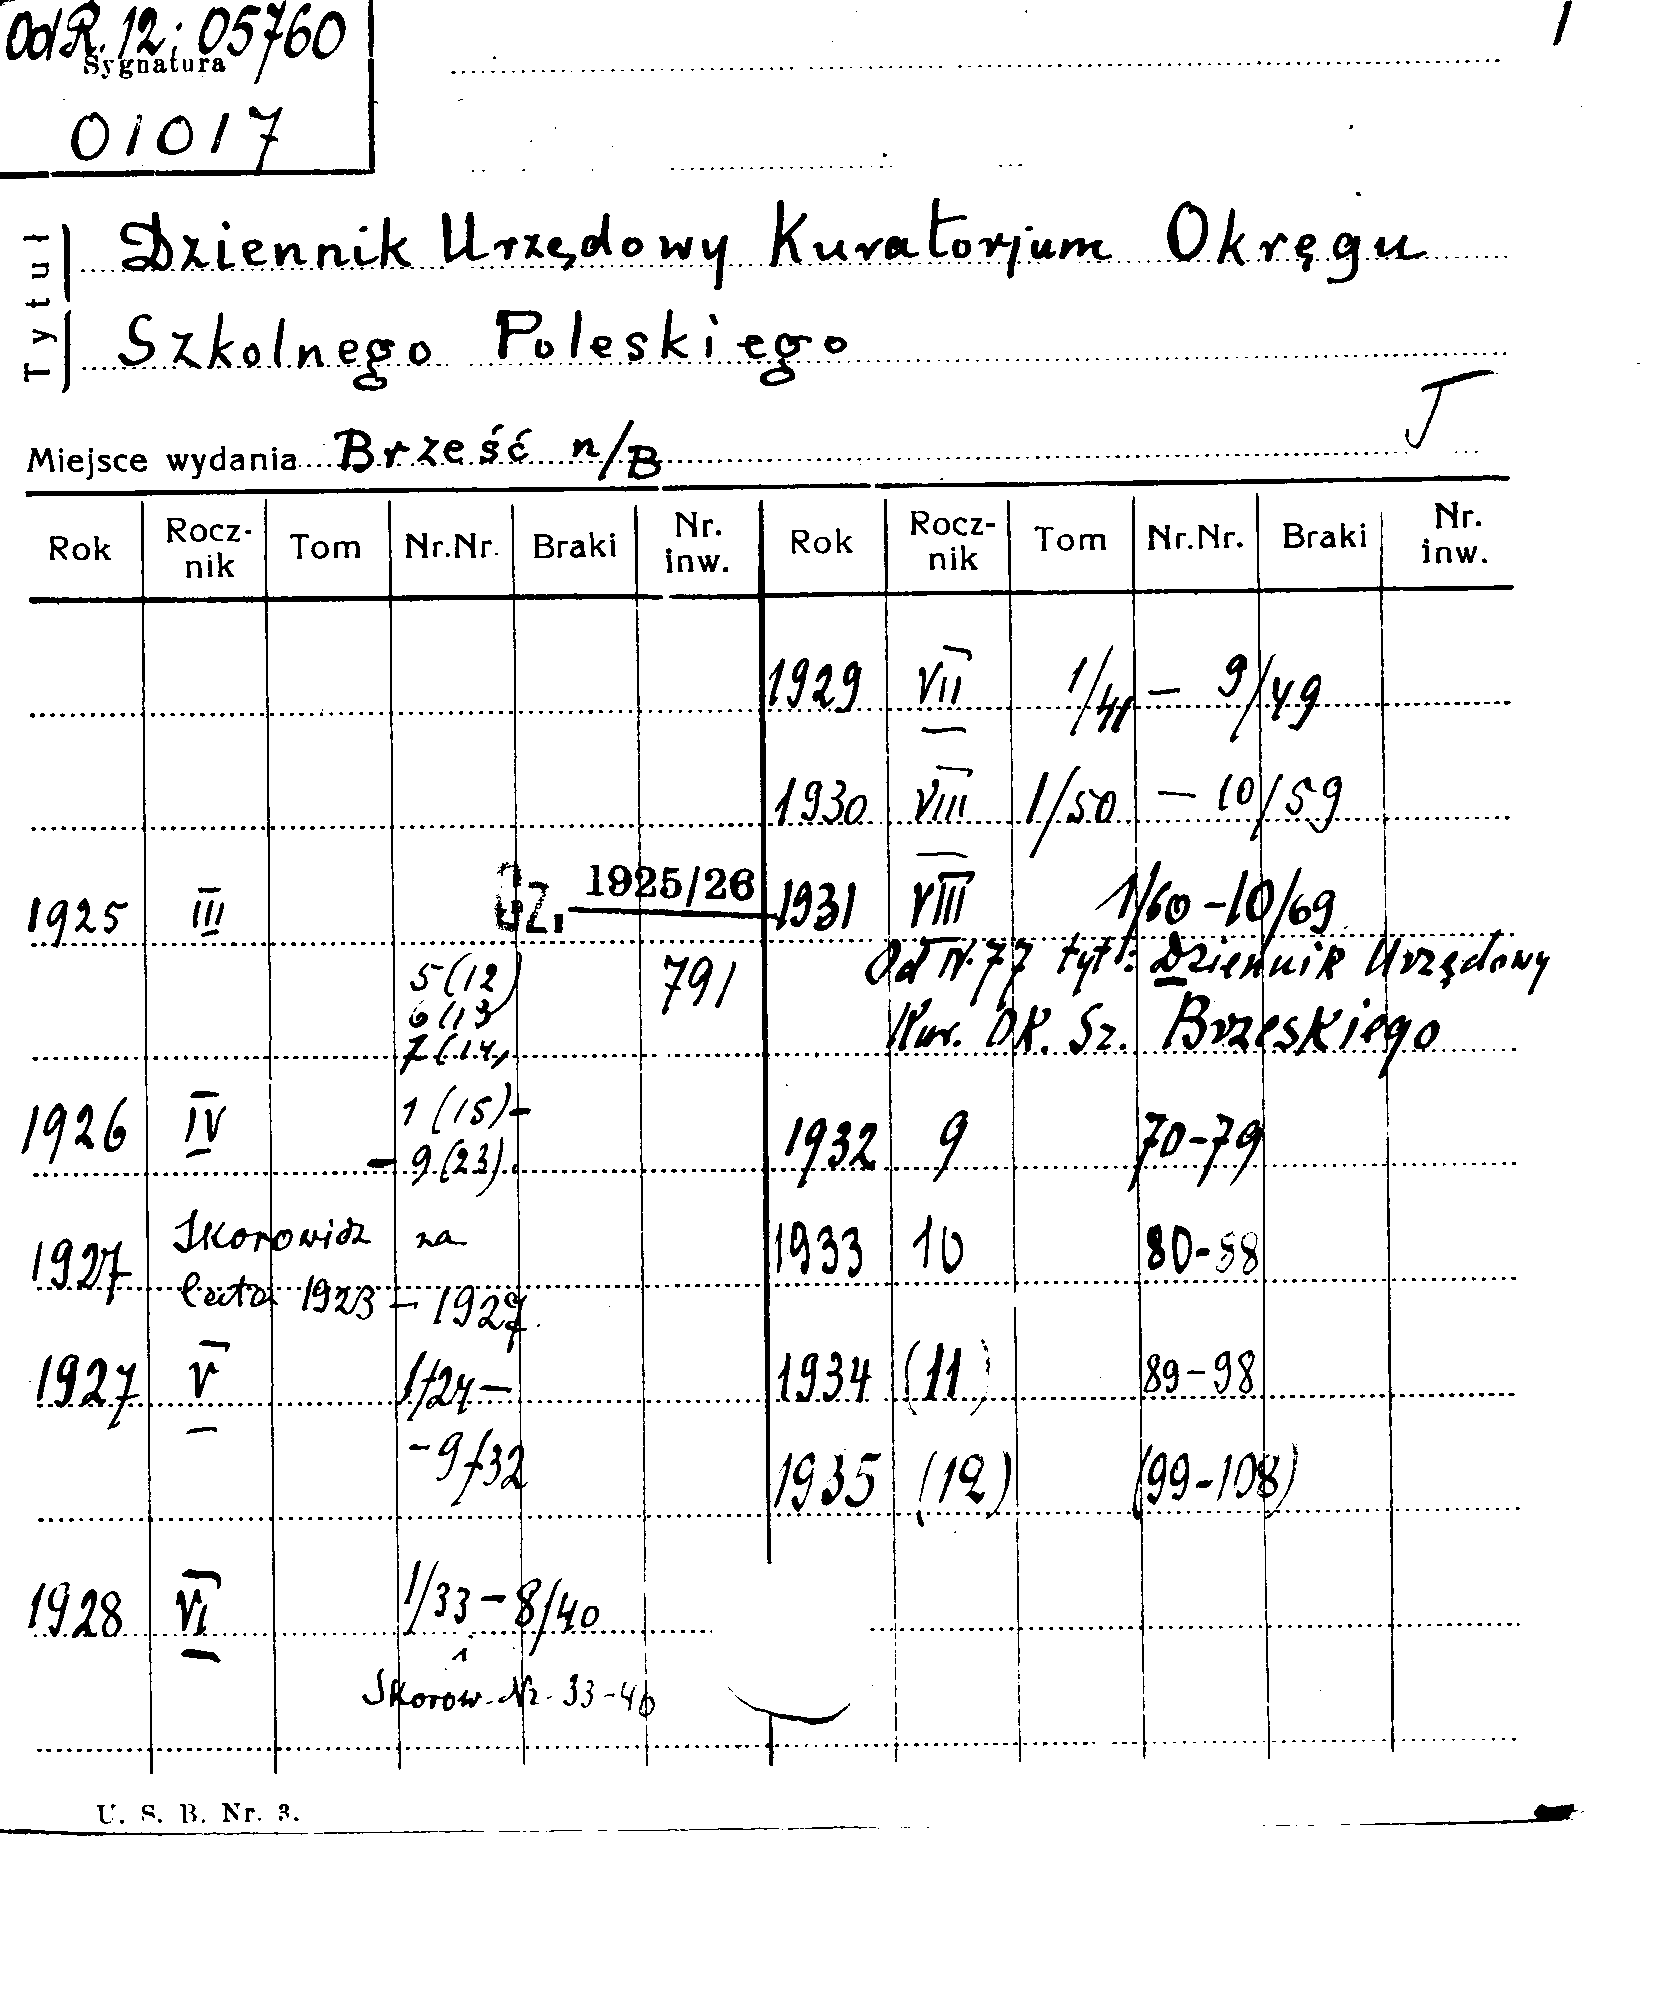 Od R. 12: 05760
Sygnatura
01017
1
Tytuł
Dziennik Urzędowy Kuratorjum Okręgu
Szkolnego Poleskiego
Miejsce wydania Brześć n/B
Rok Rocz-nik Tom Nr.Nr. Braki Nr. inw. Rok Rocz-nik Tom Nr.Nr. Braki Nr. inw.
1925 III Cz. 1925/26
5 (12) 791
6 (13)
7 (14)
1926 IV 1 (15) -
- 9 (23).
1927 Skorowidz na
lata 1923 - 1927.
1927 V 1/24 -
- 9/32
1928 VI 1/33 - 8/40
Skorow. Nr. 33-40
1929 VII 1/41 - 9/49
1930 VIII 1/50 - 10/59
1931 VIII 1/60 - 10/69
Od Nr. 77 tyt.: Dziennik Urzędowy
Kur. Ok. Sz. Brzeskiego
1932 9 70-79
1933 10 80-88
1934 (11) 89-98
1935 (12) (99-108)
U. S. B. Nr. 3.